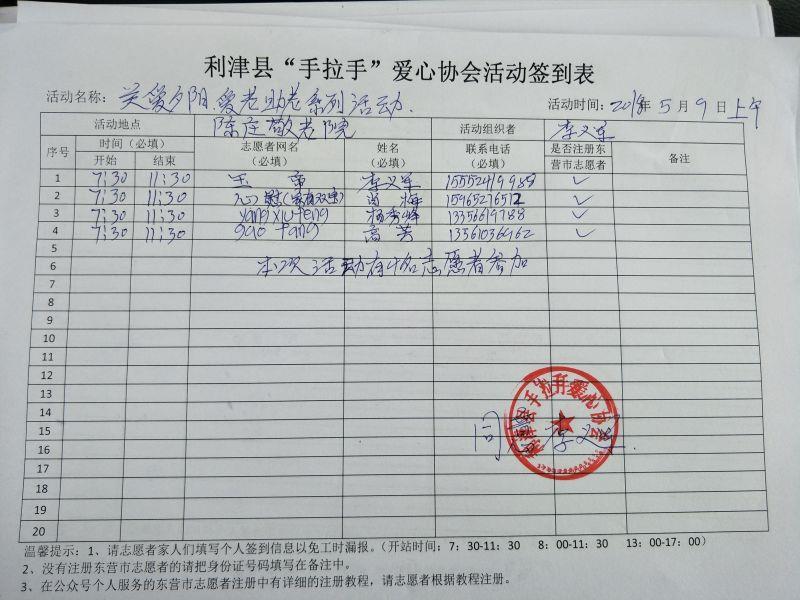 利津县“手拉手”爱心协会活动签到表
活动名称：关爱夕阳.爱老助老系列活动. 活动时间：2018年5月9日上午
活动地点 陈庄敬老院 活动组织者 李义军
序号 时间（必填） 志愿者网名（必填） 姓名（必填） 联系电话（必填） 是否注册东营市志愿者 备注
开始 结束
1 7:30 11:30 玉帝 李义军 15552419988 ✓
2 7:30 11:30 梅 15965276512 ✓
3 7:30 11:30 yangxiufeng 杨秀峰 13356619788 ✓
4 7:30 11:30 gao fang 高芳 13561036962 ✓
5
6 本次活动有4名志愿者参加
7
8
9
10
11
12
13
14
15
16
17
18
19
20
利津县手拉手爱心协会
同意 李义军.
温馨提示：1、请志愿者家人们填写个人签到信息以免工时漏报。（开站时间：7：30-11:30 8：00-11:30 13：00-17：00）
2、没有注册东营市志愿者的请把身份证号码填写在备注中。
3、在公众号个人服务的东营市志愿者注册中有详细的注册教程，请志愿者根据教程注册。